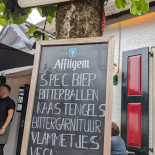 Affligem
Affligem
SPEC BIER
BITTERBALLEN
KAASTENGELS
BITTERGARNITUUR
VLAMMETJES